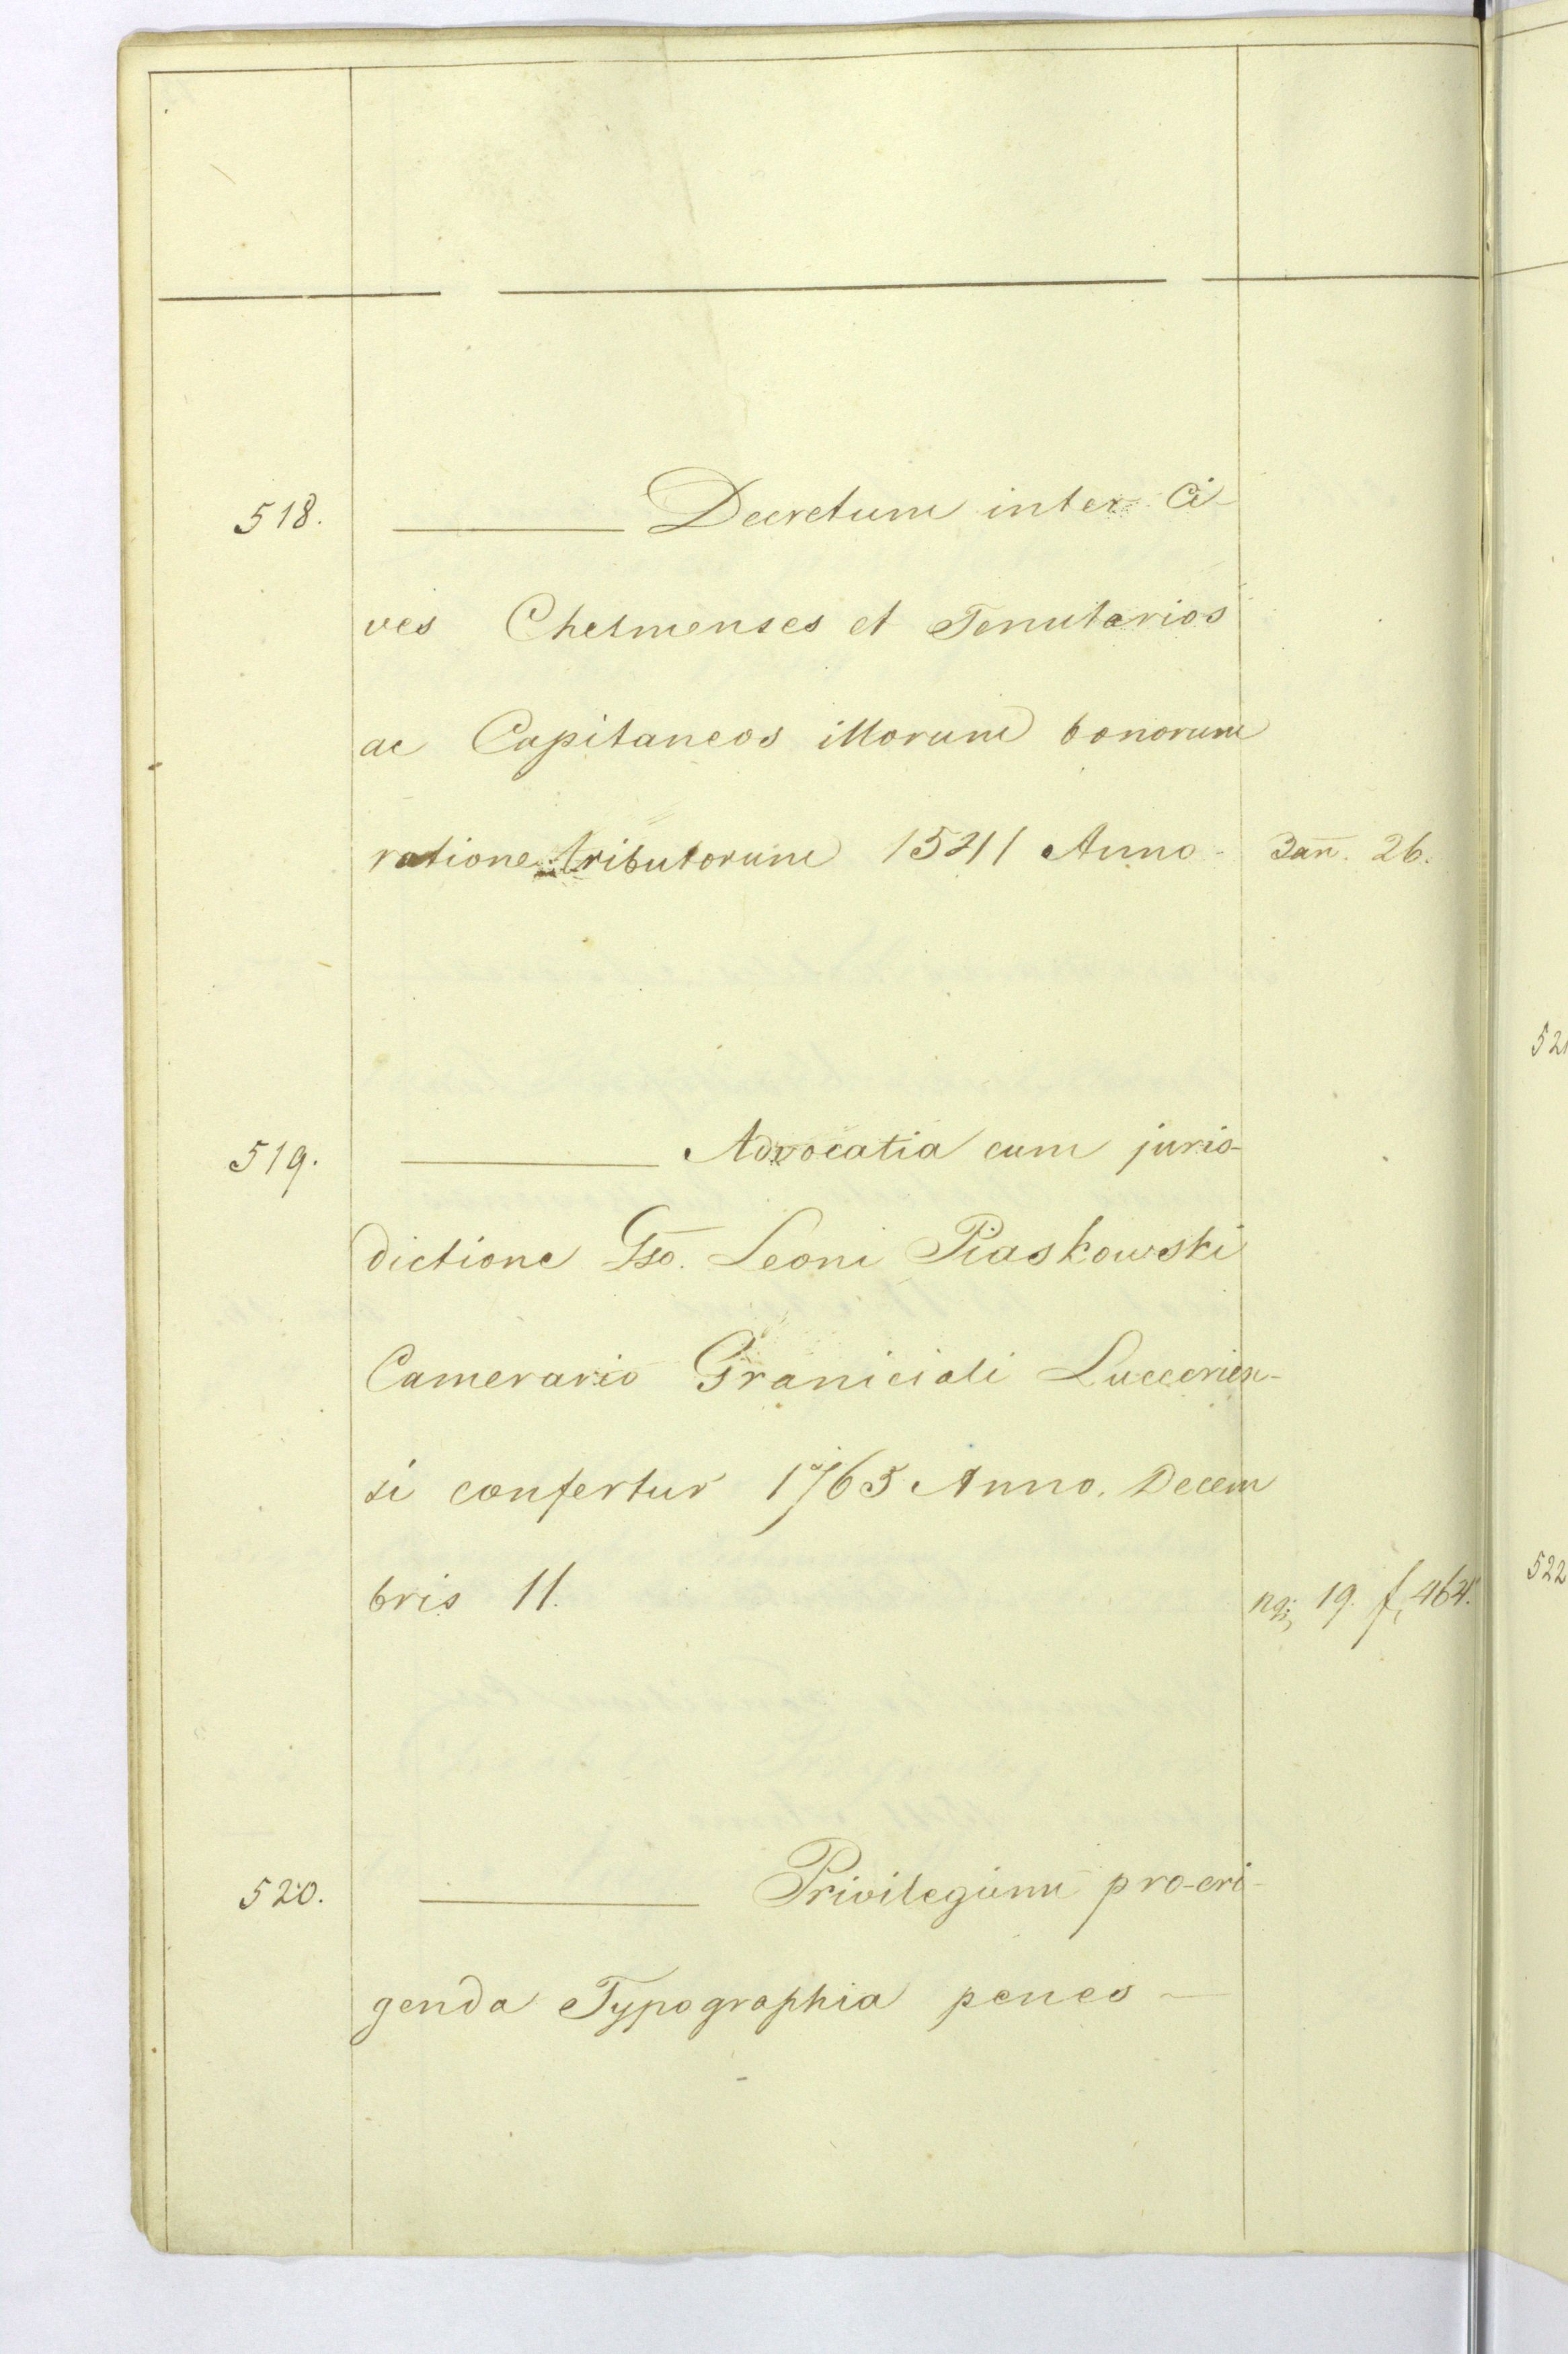 518. Decretum inter Ci-
ves Chelmenses et Tenutarios
ac Capitaneos illorum bonorum
ratione tributorum 1541 Anno - Jan̄. 26.
519. Advocatia cum juris-
dictione Gso. Leoni Piaskowski
Camerario Graniciali Luccorien-
si confertur 1765 Anno. Decem
bris 11. 19. f, 464.
520. Privilegium pro-eri-
genda Typographia penes -
521
522